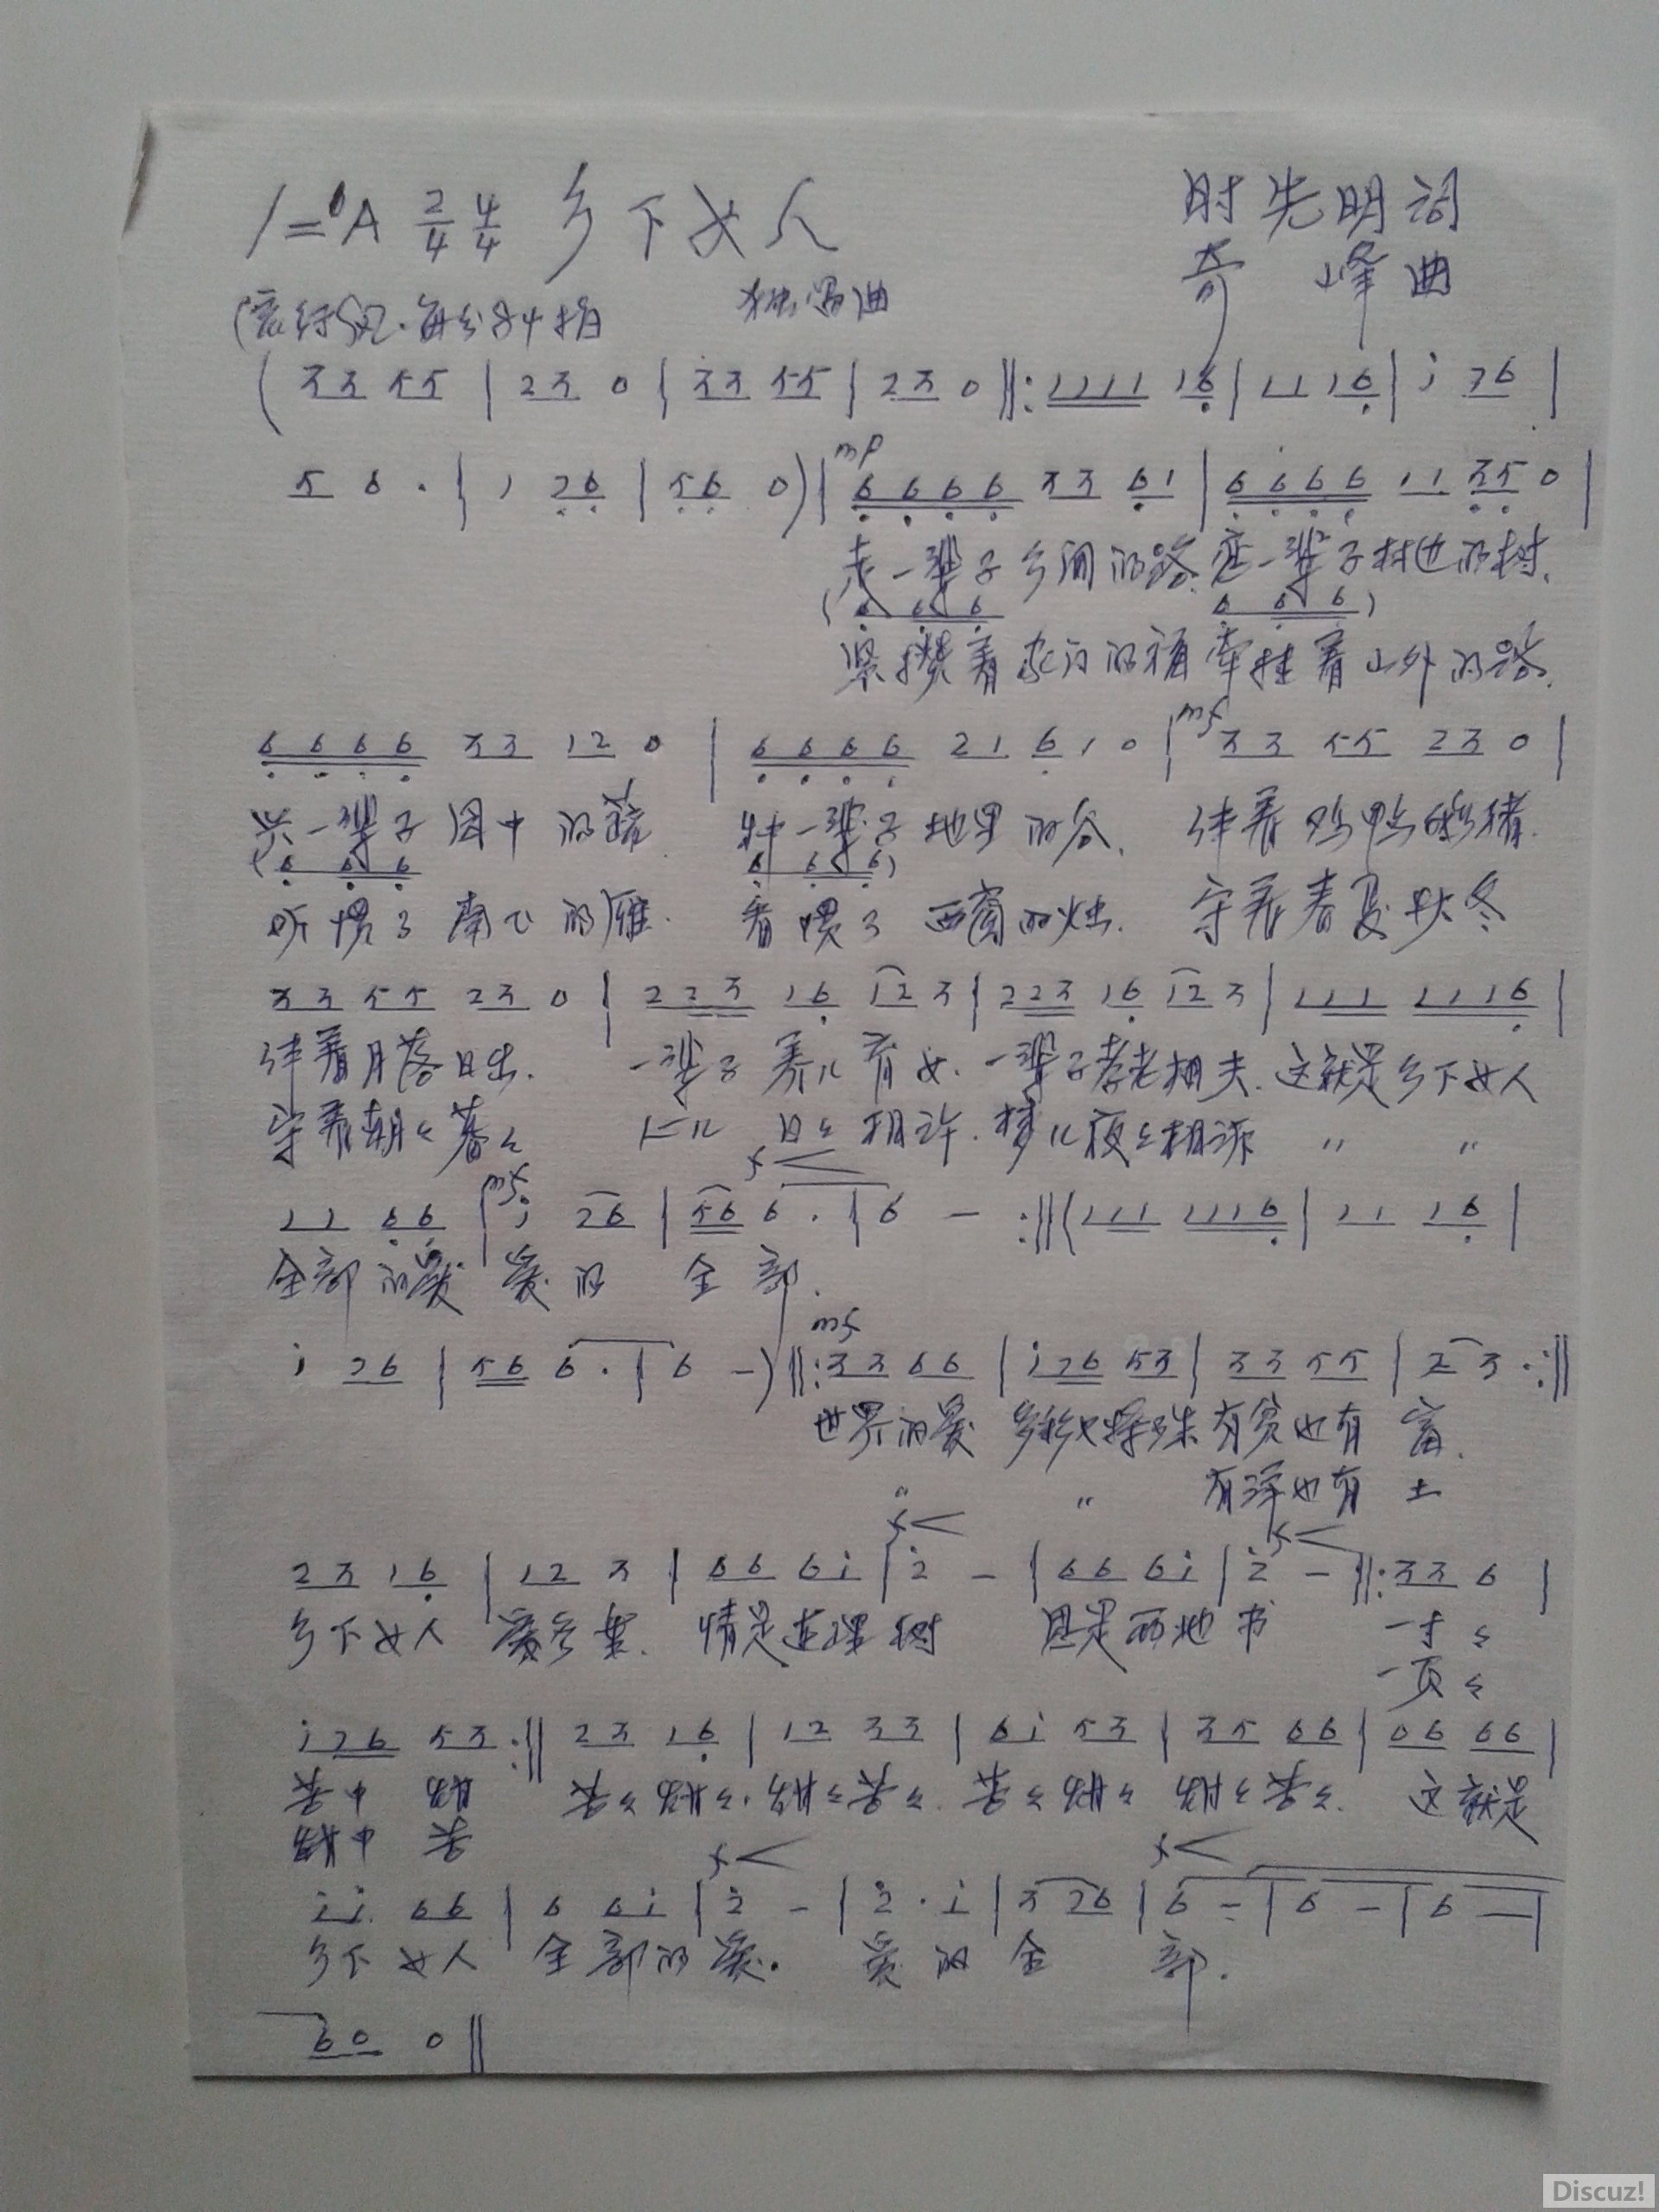 1=♭A 2/4 4/4 乡下女人 时先明词
独唱曲 奇峰曲
(流行风.每分84拍
( 33 55 | 23 0 | 33 55 | 23 0 ‖: 1111 16 | 11 16 | i 76 |
5 6 · | 1 76 | 56 0 ) | mp 6666 33 61 | 6666 11 35 0 |
走一辈子乡间的路.一辈子村边的树.
( 6 6 6 6 6 6 )
紧攥着家的福牵挂着山外的路.
6666 33 12 0 | 6666 21 6 1 0 | mf 33 55 23 0 |
一辈子园中的蔬 种一辈子地里的谷. 伴着鸡鸭猪.
( 6 6 6 6 6 6 )
听惯了南飞的雁. 看惯了西窗的烛. 守着春夏秋冬
33 55 23 0 | 223 16 12 3 | 223 16 12 3 | 111 1116 |
伴着月落日出. 一辈子养儿育女.一辈子孝老相夫.这就是乡下女人
守着朝々暮々 日々相许.梦儿夜々相 〃 〃
f
11 66 | mf i 76 | 56 6 · | 6 – :‖ ( 111 1116 | 11 16 |
全部的爱 爱的 全部.
mf
i 76 | 56 6 · | 6 – ) ‖: 33 66 | i76 53 | 33 55 | 2 3 · :‖
世界的爱 特殊 有贫也有富.
〃 〃 有洋也有土
f f
23 16 | 12 3 | 66 6i | 2 – | 66 6i | 2 – ‖: 33 6 |
乡下女人 爱 情是连理树 恩是两地书 一寸々
一页々
i76 53 :‖ 23 16 | 12 33 | 6i 53 | 35 66 | 06 66 |
苦中甜 苦々甜々.甜々苦々.苦々甜々 甜々苦々. 这就是
甜中苦
f f
ii 66 | 6 6i | 2 – | 2 · i | 3 76 | 6 – | 6 – | 6 – |
乡下女人 全部的爱. 爱的全部.
60 0 ‖
Discuz!